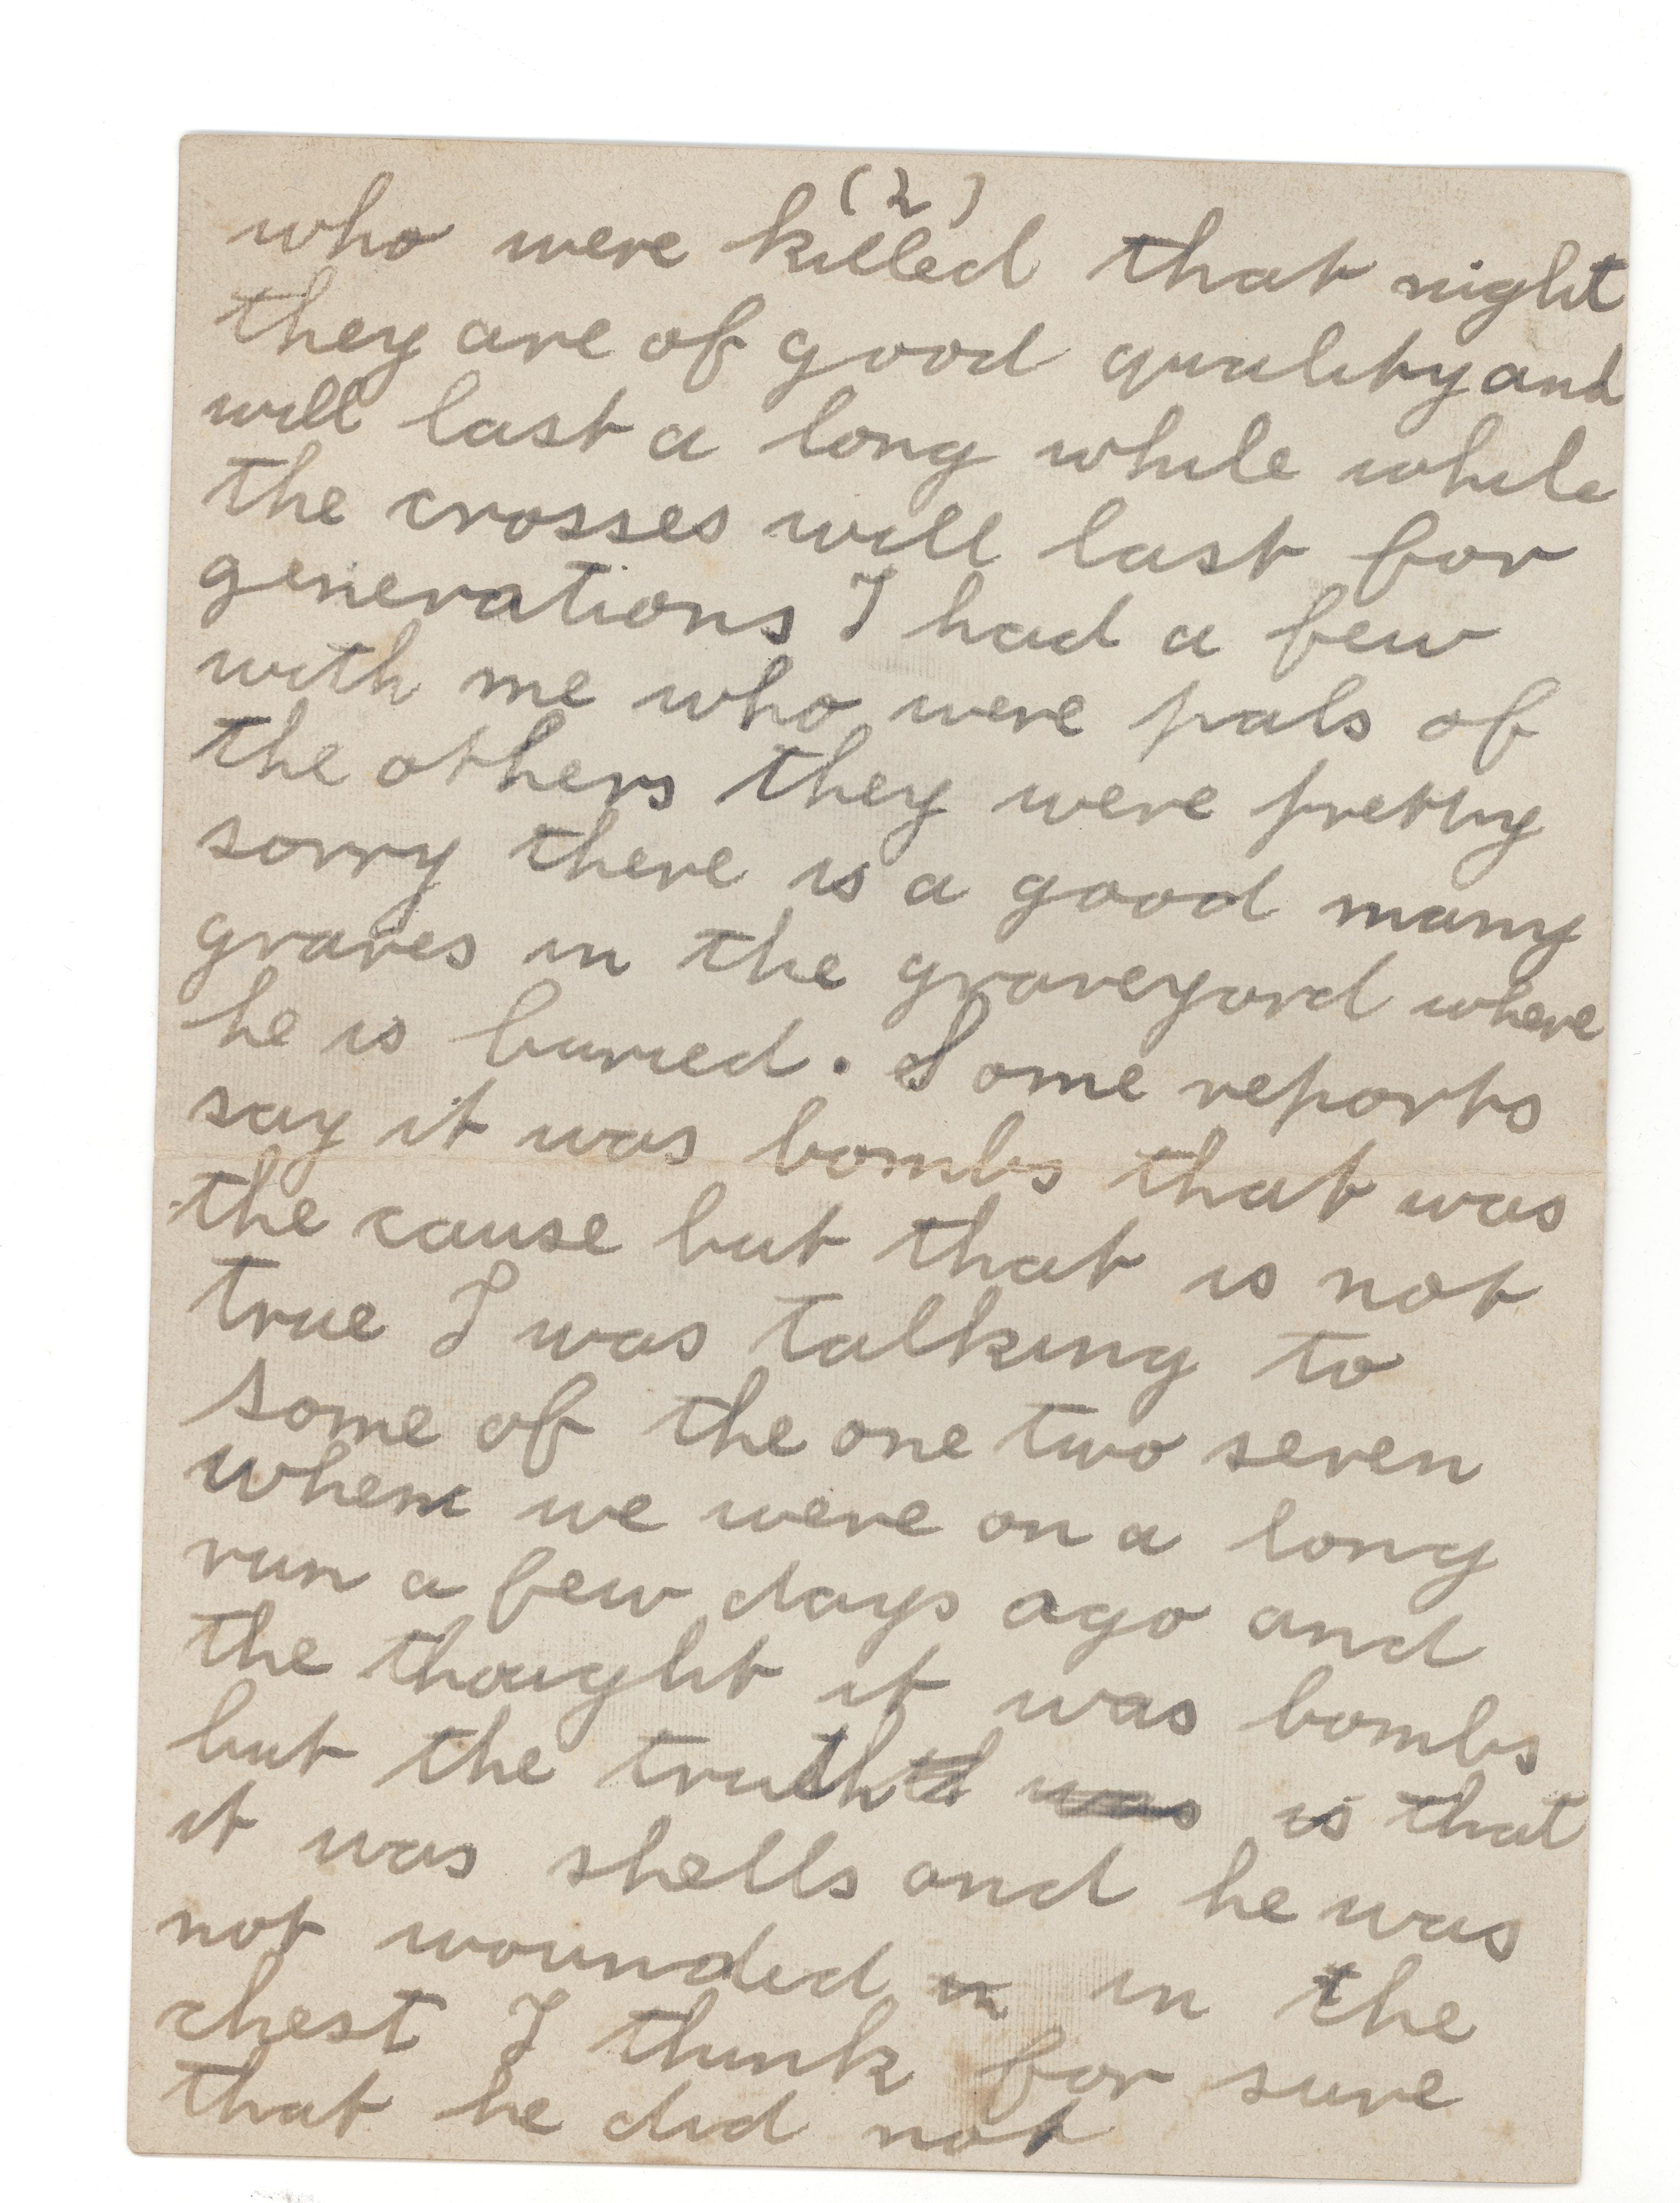 (2)
who were killed that night
they are of good quality and
will last a long while while
the crosses will last for
generations I had a few
with me who were pals of
the others they were pretty
sorry there is a good many
graves in the graveyard where
he is buried. Some reports
say it was bombs that was
the cause but that is not
true I was talking to
some of the one two seven
when we were on a long
run a few days ago and
the thought it was bombs
but the truth was is that
it was shells and he was
not wounded in in the
chest I think for sure
that he did not